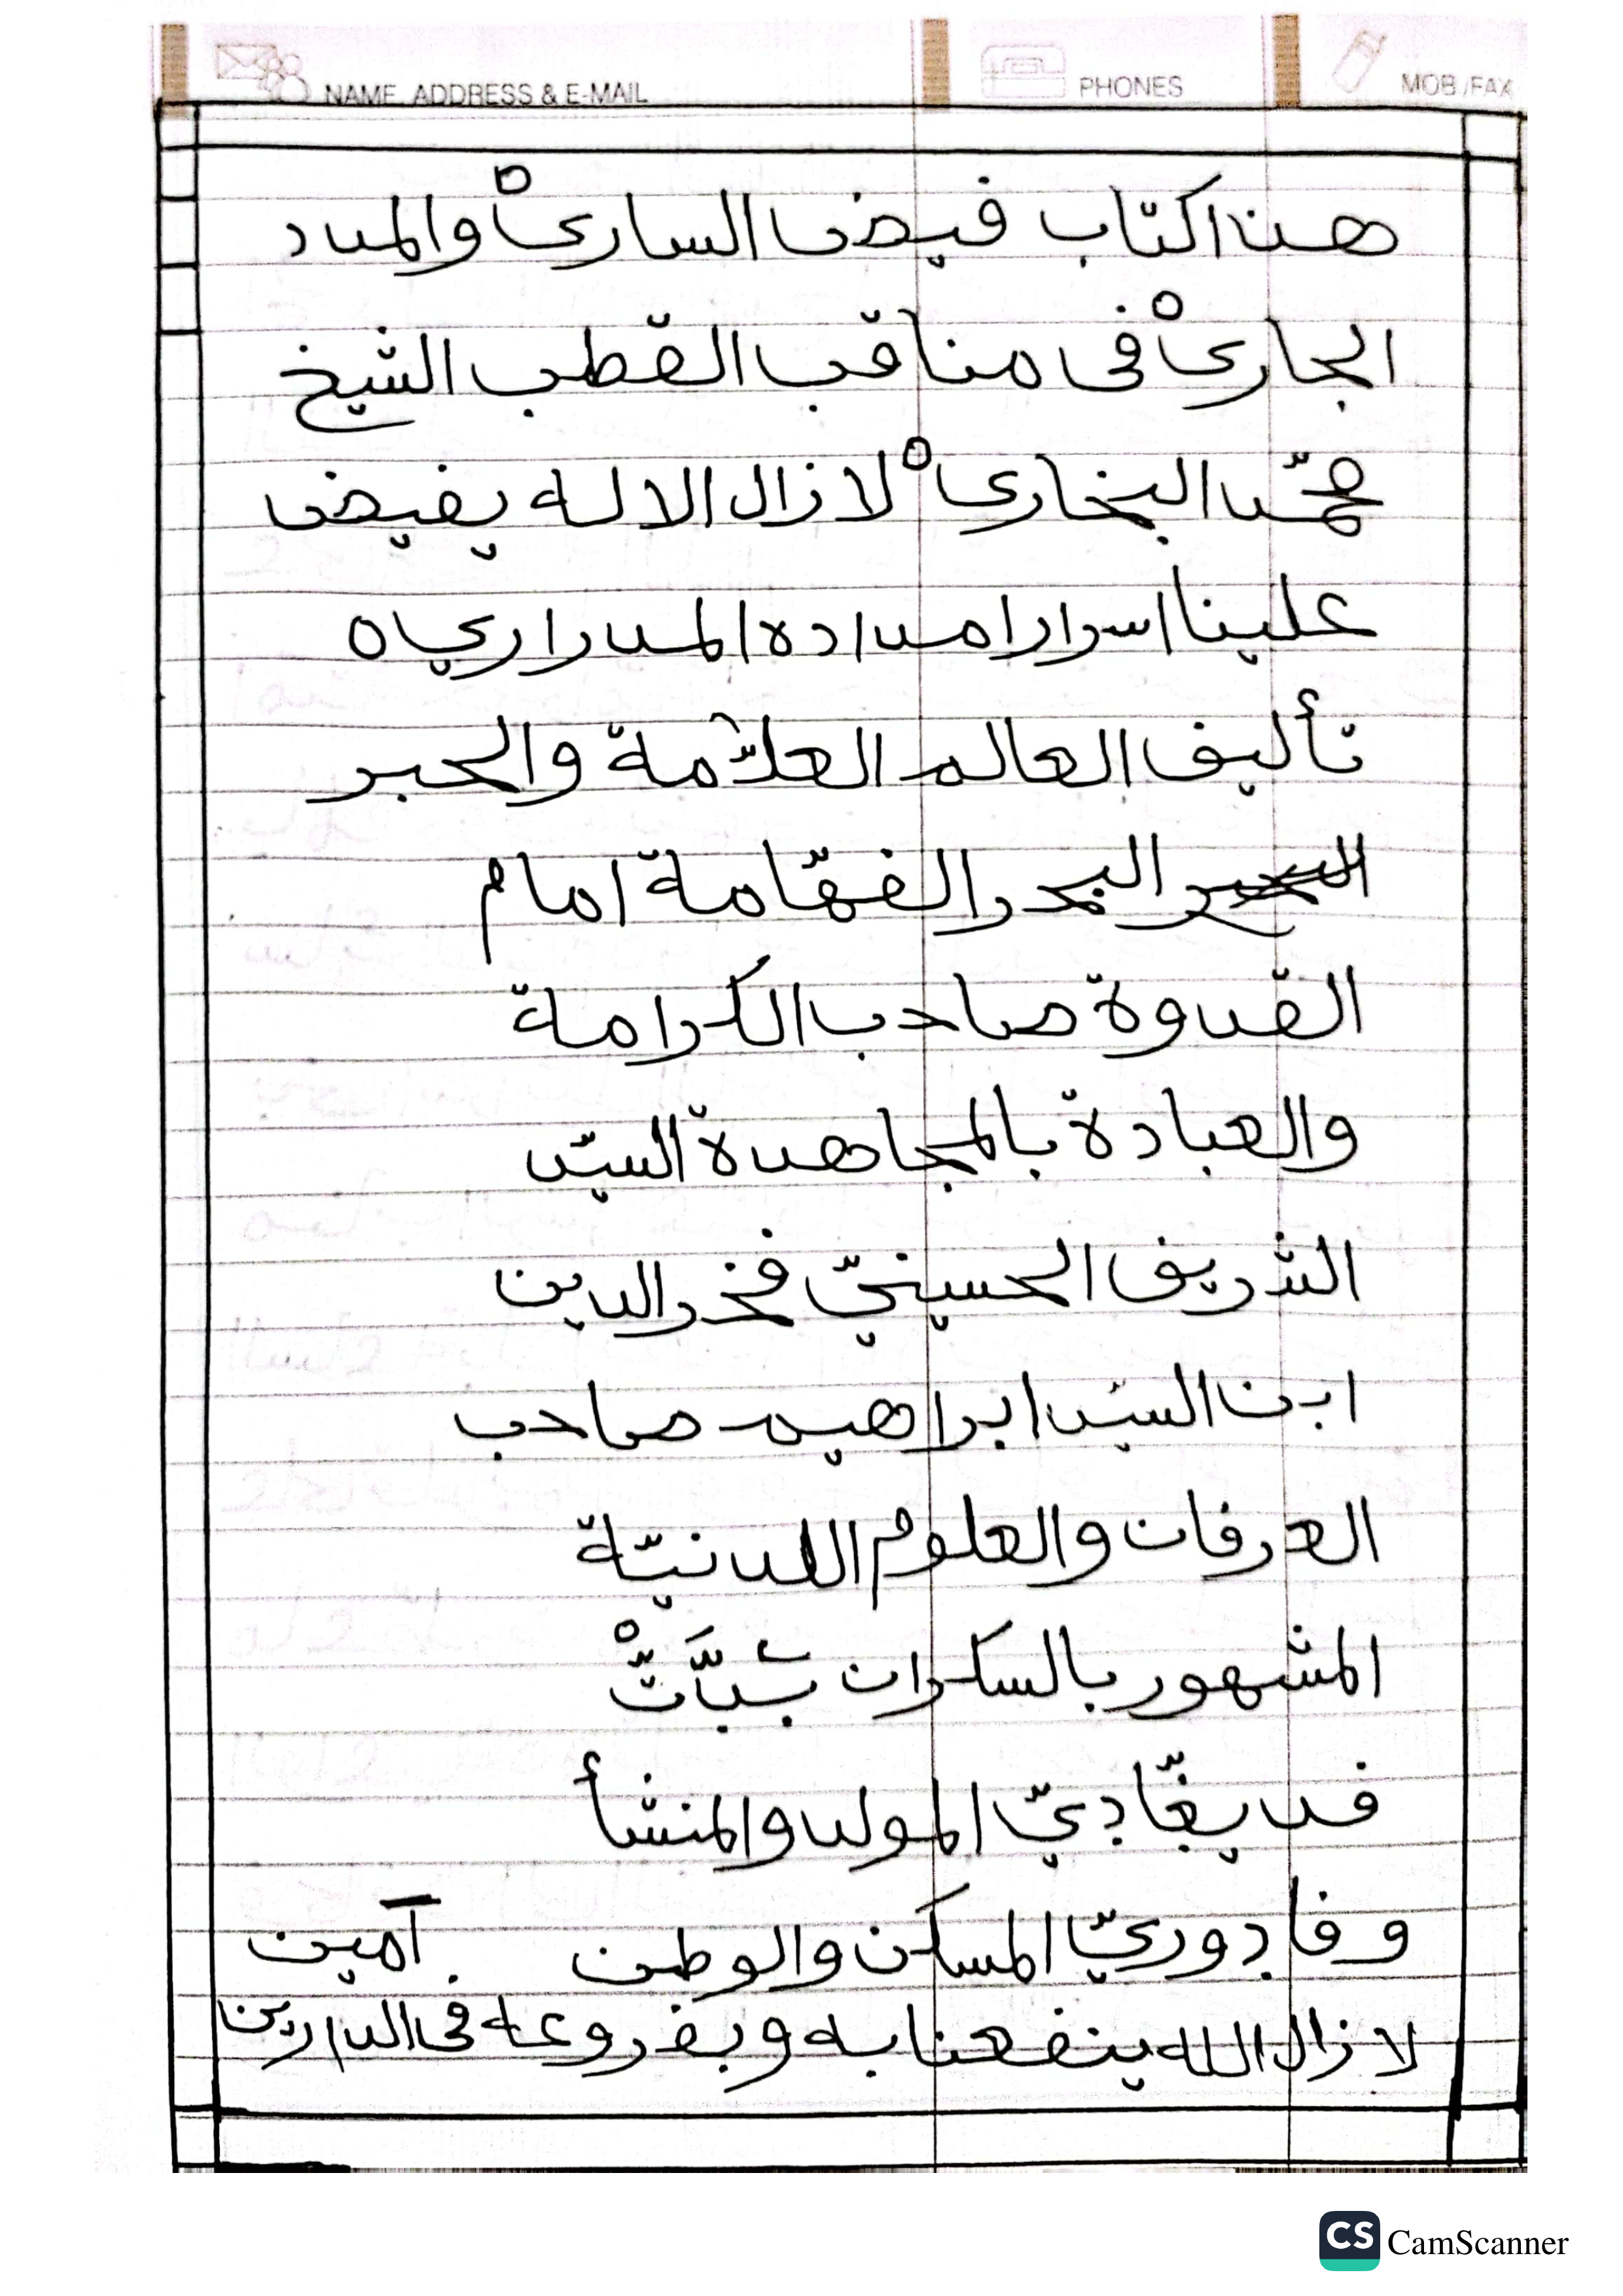 NAME, ADDRESS & E-MAIL PHONES MOB./FAX
هذا كتاب فيض الساريْ والمدد
الجاريْ فى مناقب القطب الشيخ
محمّد البخاري لازال الاله يفيض
علينا اسرار امداده المدراري ٥
تأليف العالم العلاّمة والحبر
البحر الفهّامة امام
القدوة صاحب الكرامة
والعبادة بالمجاهدة السيّد
الشريف الحسينيّ فخر الدين
ابن السيّد ابراهيم صاحب
العرفان والعلوم اللدنيّة
المشهور بالسكران
المولد والمنشأ
المسكن والوطن آمين
لازال الله ينفعنا به وبفروعه فى الدارين
CS CamScanner